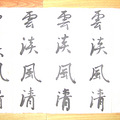 雲淡風清
雲淡風清
雲淡風清